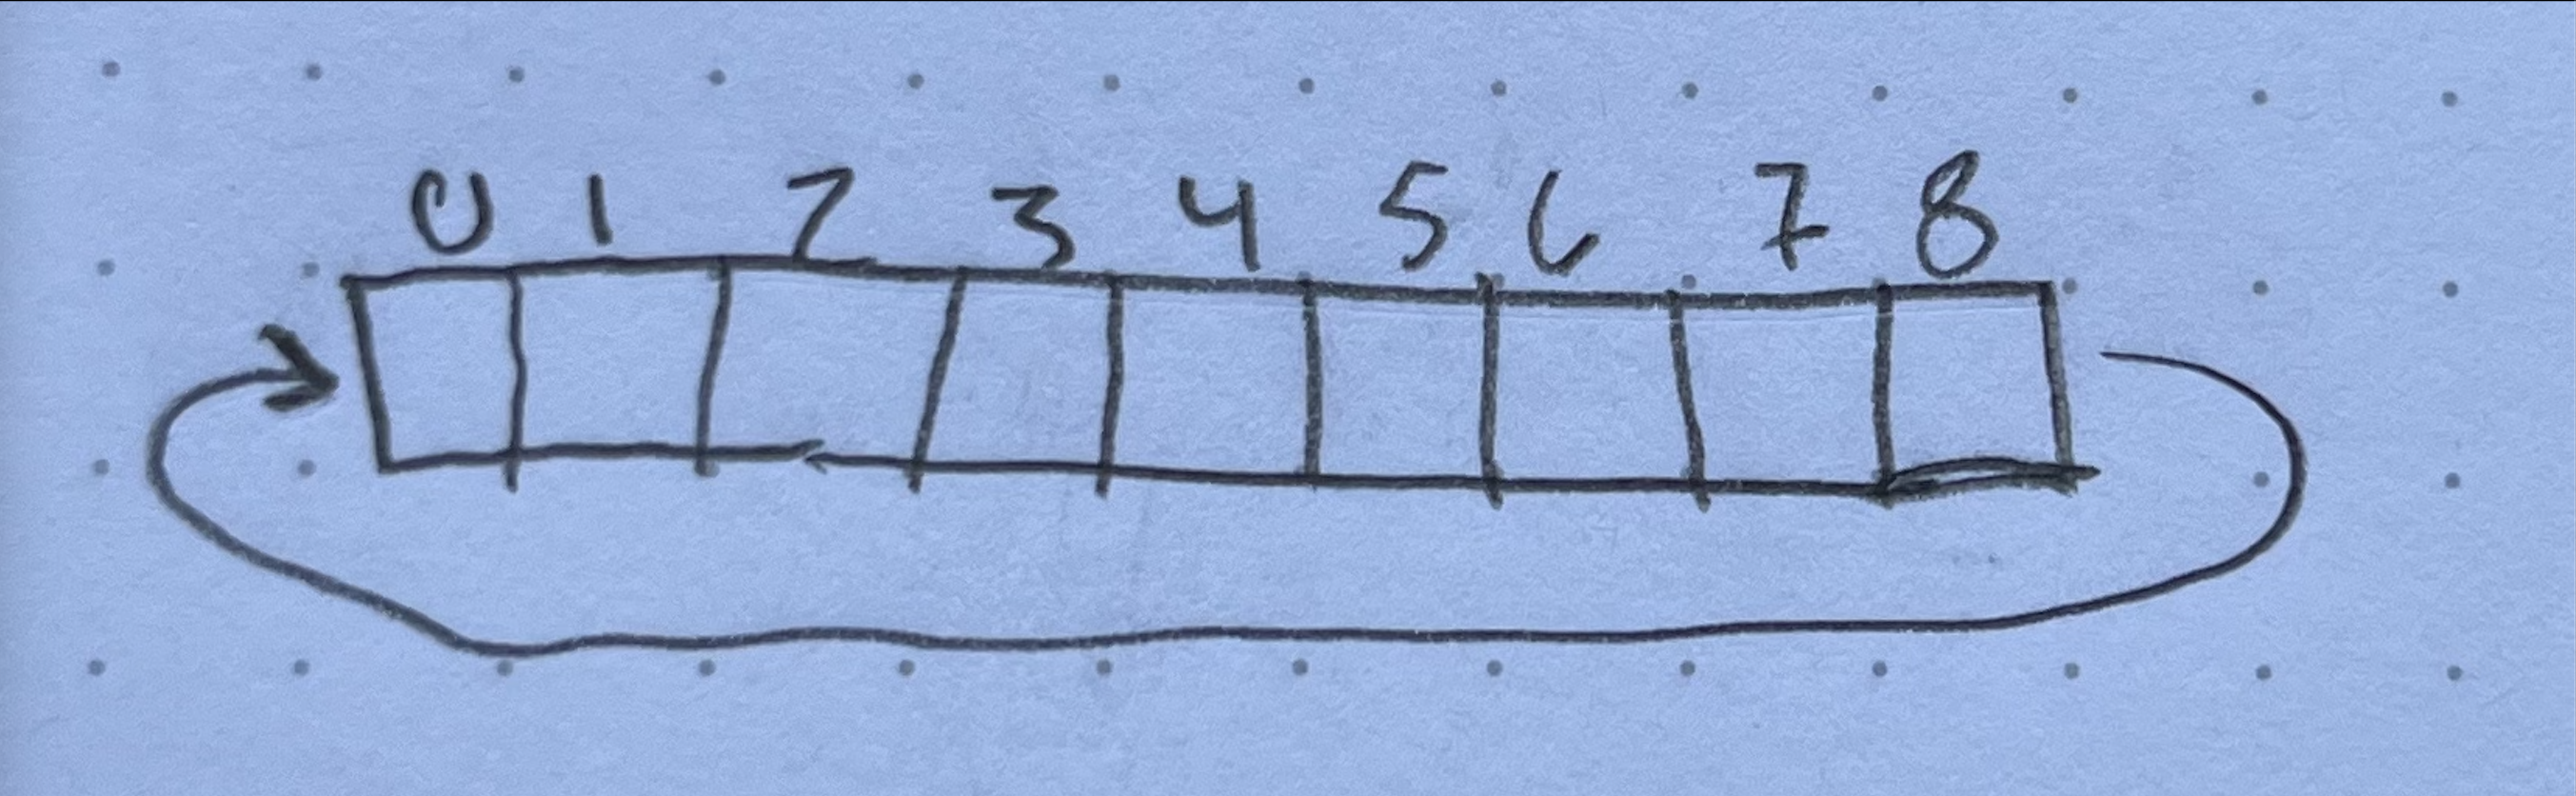 0 1 2 3 4 5 6 7 8